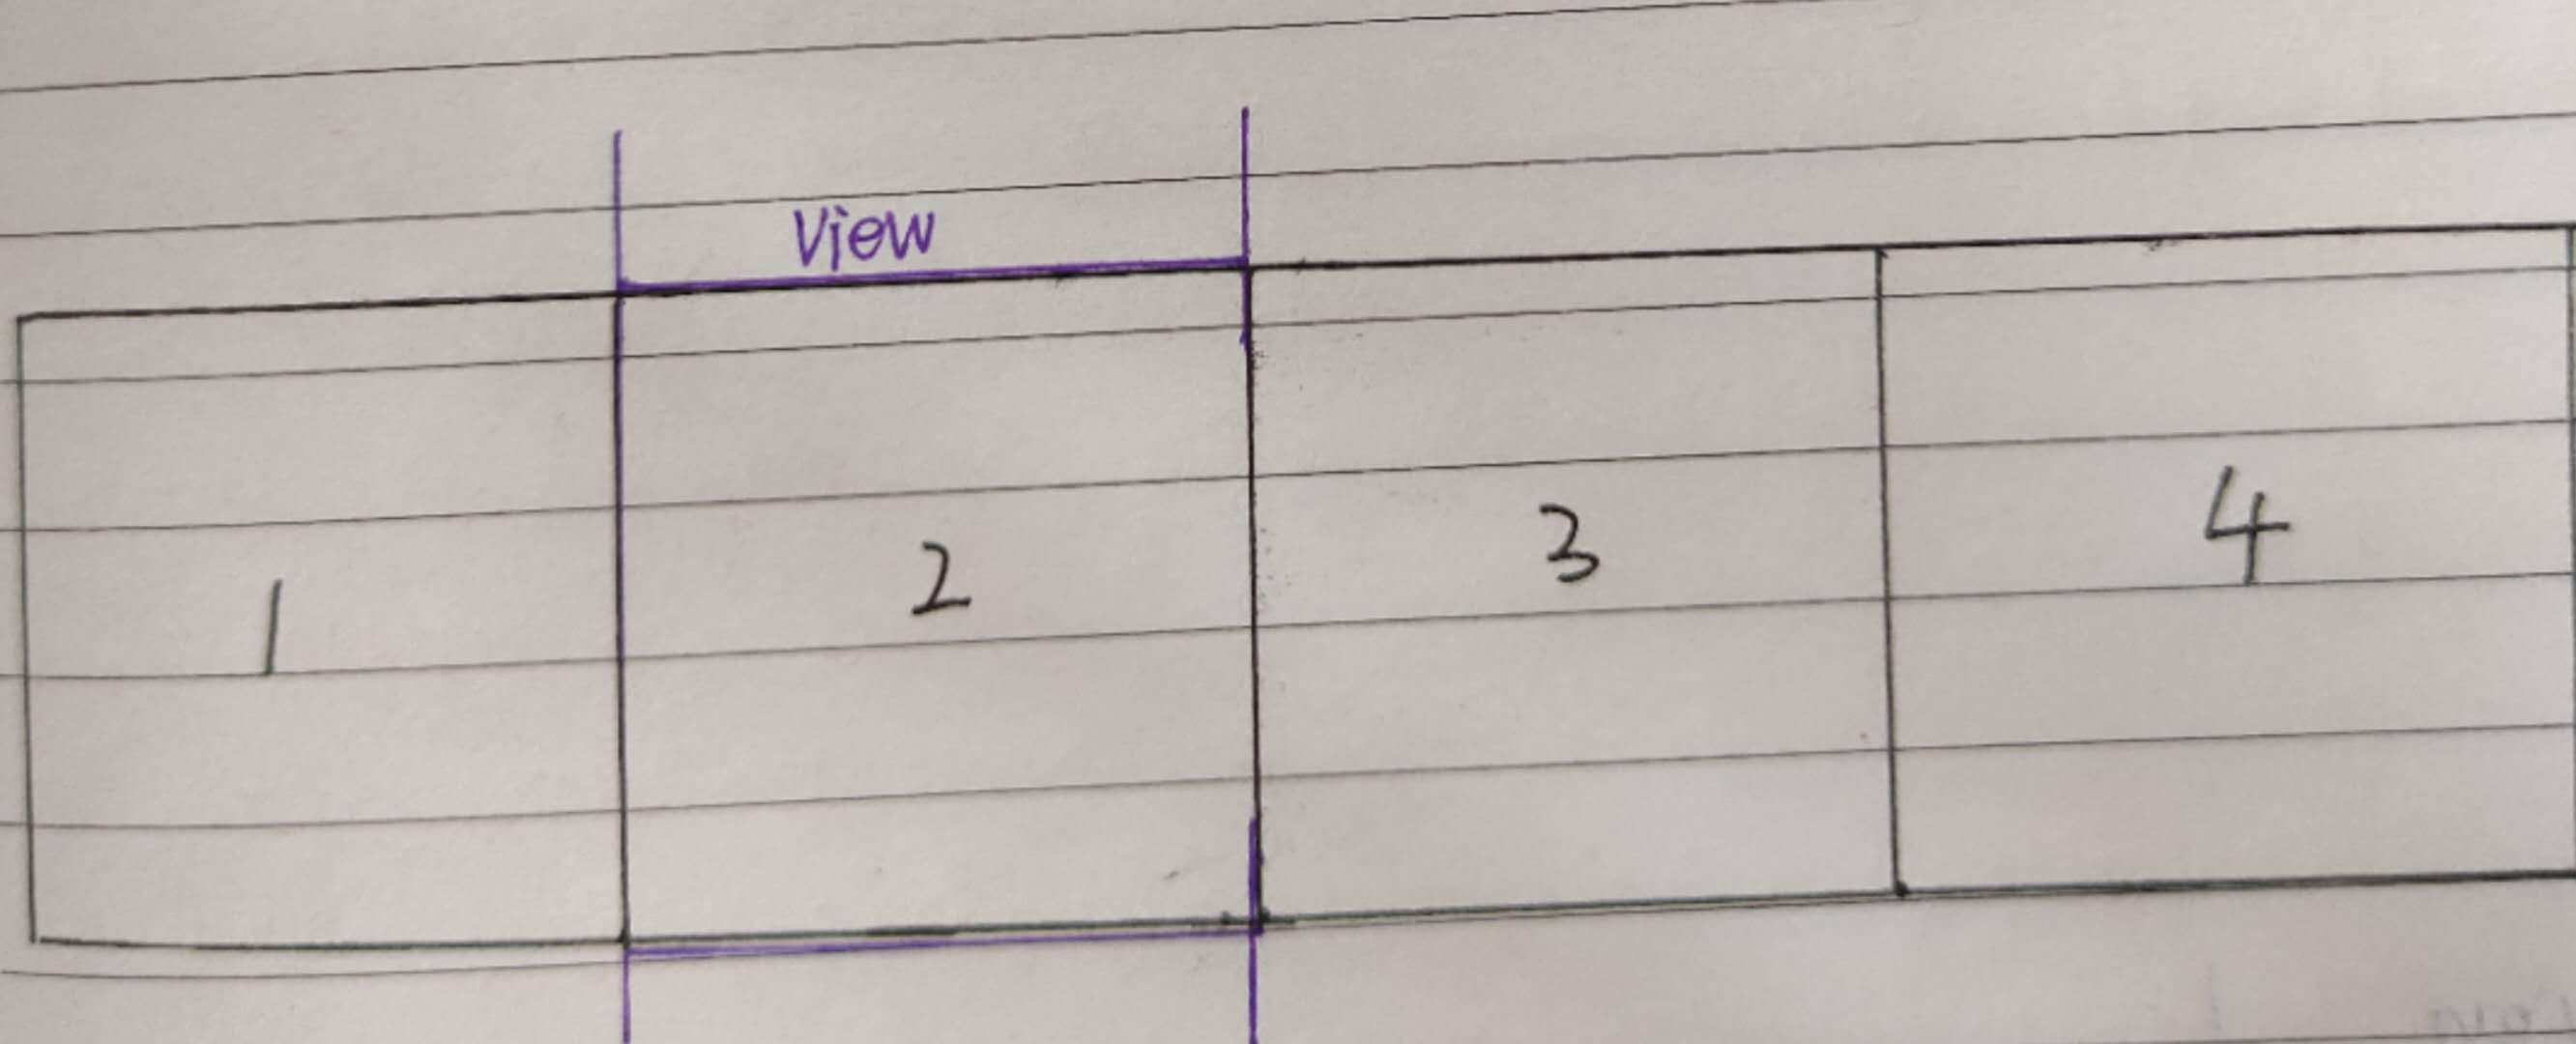 View
1 2 3 4